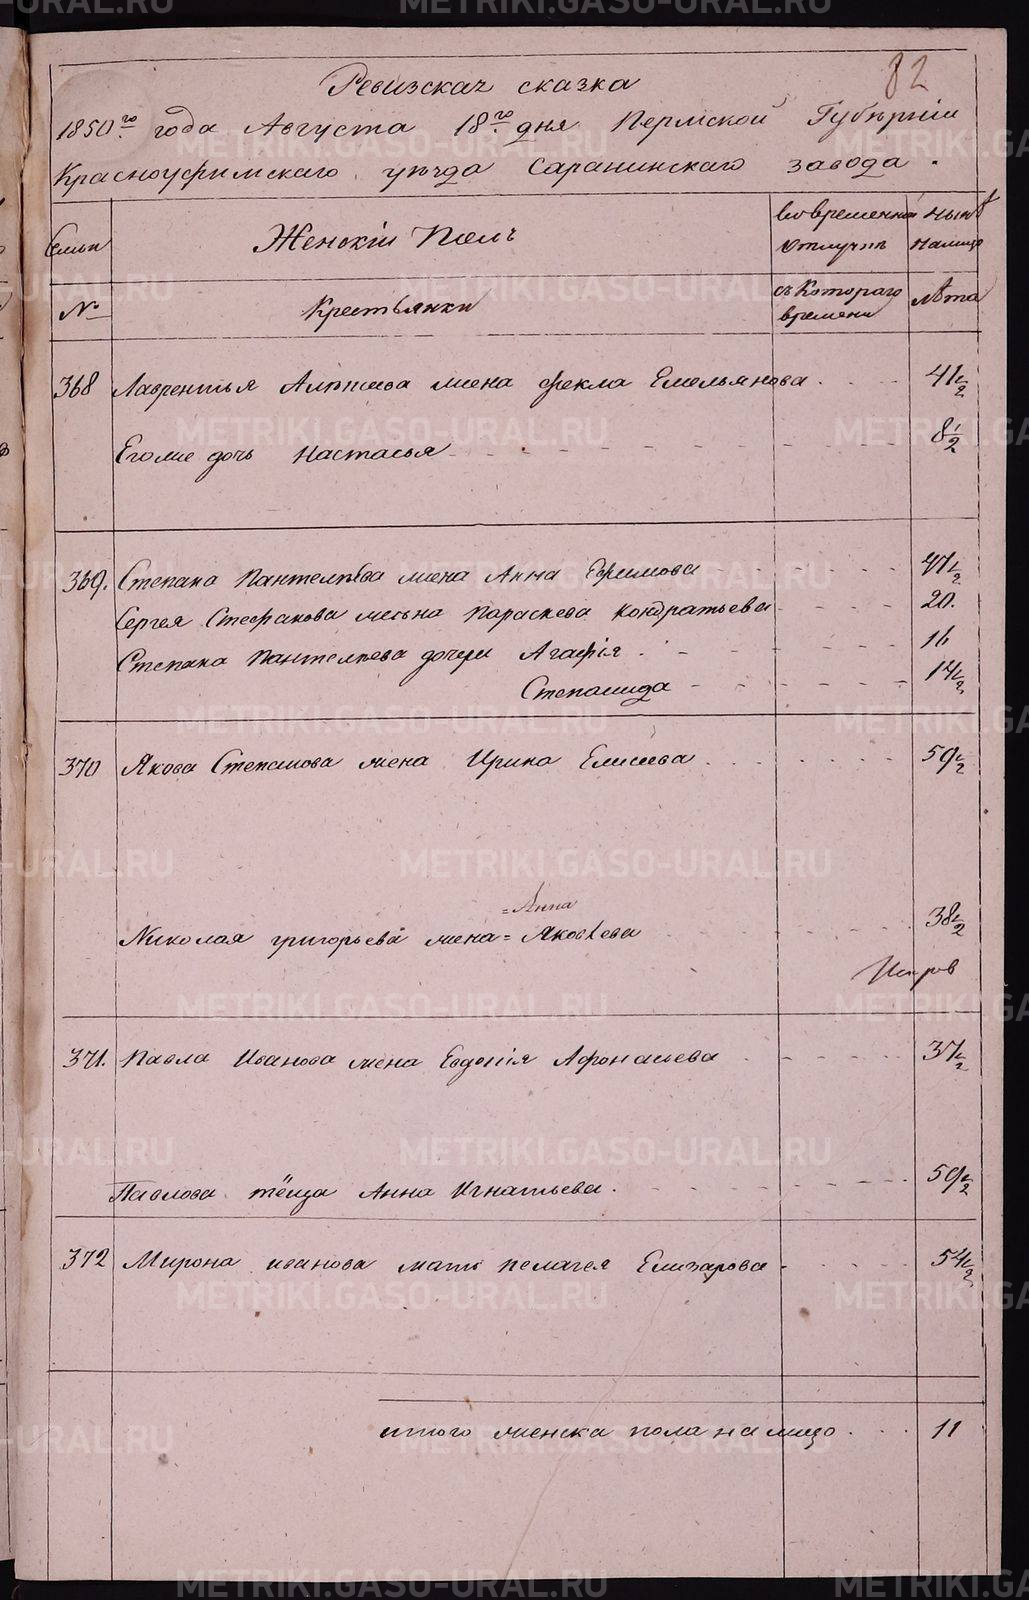 82
Ревизская сказка
1850го года Августа 18го дня Пермской Губерніи
Красноуфимскаго уѣзда Саранинскаго завода.
Семьи
Женскій Полъ
во временной отлучкѣ
нынѣ на лицо
№
Крестьянки
съ Котораго времени
лѣта
368 Лаврентья Алѣксѣева жена фекла Емельянова 41 1/2
Егоже дочь Настасья 8 1/2
369. Степана Пантелѣева жена Анна Ефимова 47 1/2
Сергея Стефанова жена Параскева Кондратьева 20.
Степана Пантелѣева дочери Агафія 16
Степанида 14 1/2
370 Якова Степанова жена Ирина Елисеева 59 1/2
=Анна
Николая григорьева жена= Яковлева 38 1/2
371. Павла Иванова жена Евдокія Афонасьева 37 1/2
Павлова тёща Анна Игнатьева. 59 1/2
372 Мирона иванова мать пелагея Елизарова 54 1/2
итого женска пола на лицо 11
METRIKI.GASO-URAL.RU